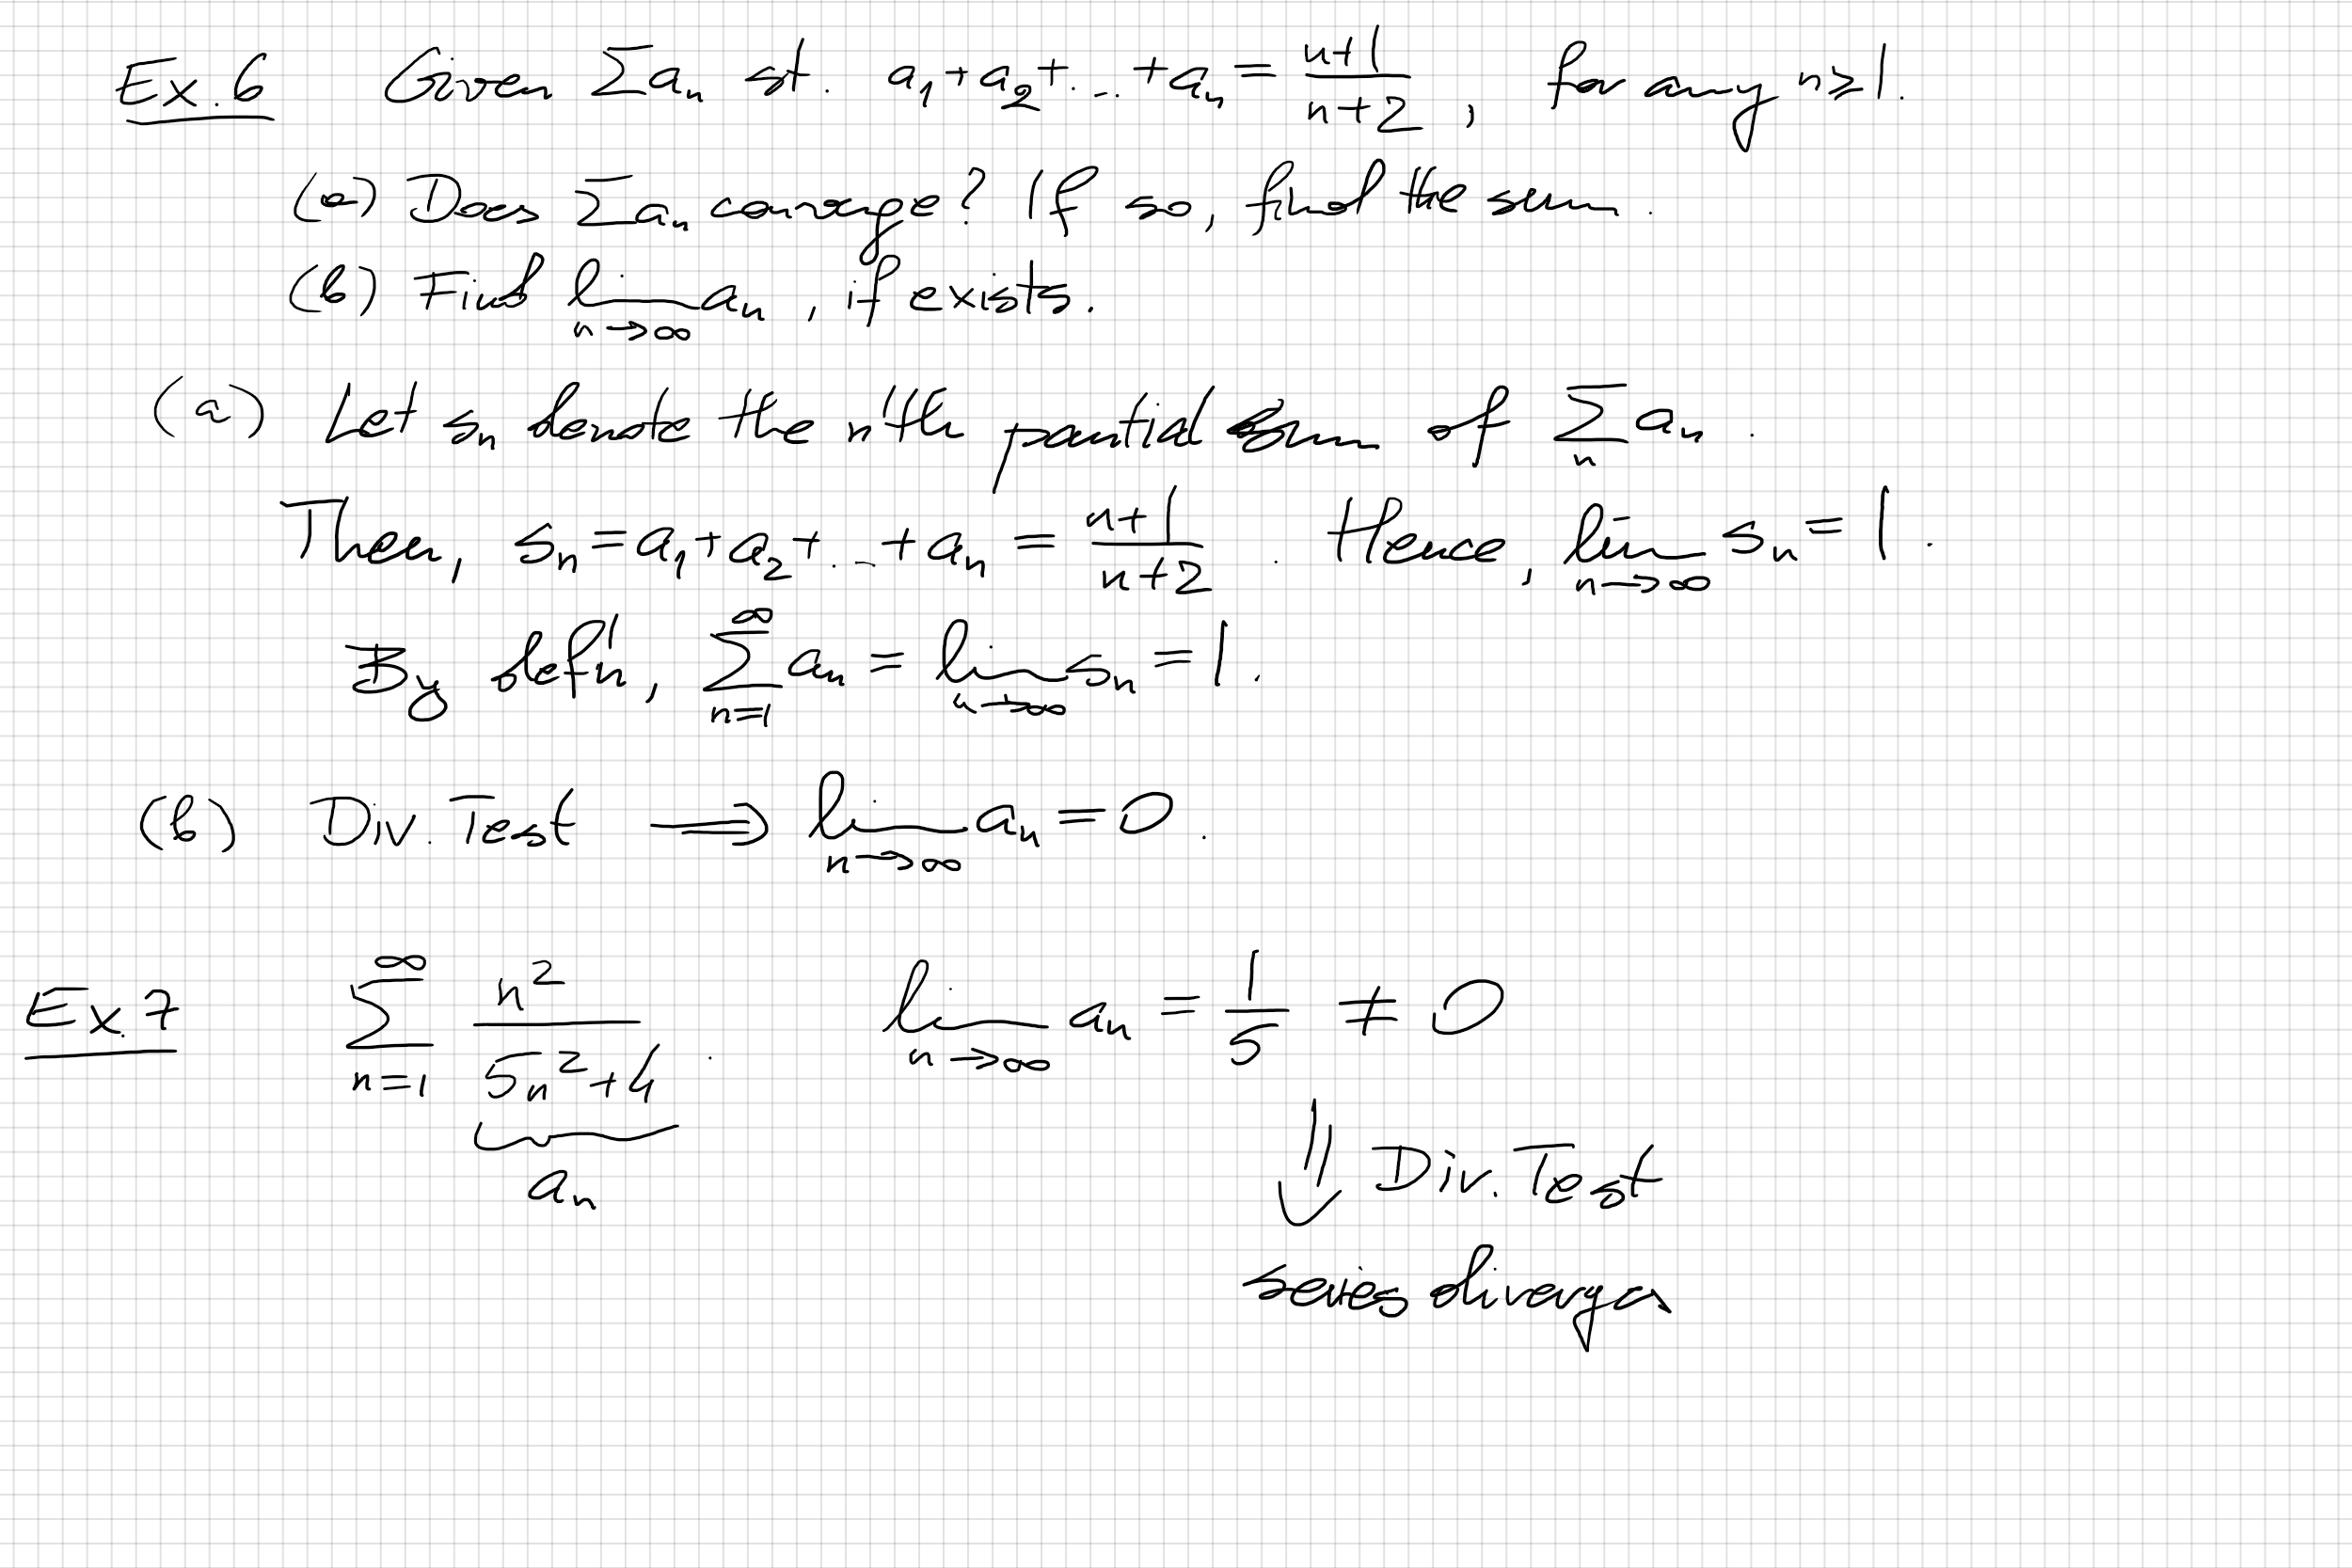 Ex. 6 Given ∑aₙ st. a₁+a₂+...+aₙ = (n+1)/(n+2), for any n≥1.
(a) Does ∑aₙ converge? If so, find the sum.
(b) Find lim_{n→∞} aₙ, if exists.
(a) Let sₙ denote the n'th partial sum of ∑_n aₙ.
Then, sₙ = a₁+a₂+...+aₙ = (n+1)/(n+2). Hence, lim_{n→∞} sₙ = 1.
By def'n, ∑_{n=1}^{∞} aₙ = lim_{n→∞} sₙ = 1.
(b) Div. Test ⟹ lim_{n→∞} aₙ = 0.
Ex. 7 ∑_{n=1}^{∞} n²/(5n²+4). lim_{n→∞} aₙ = 1/5 ≠ 0
aₙ
⇓ Div. Test
series diverges